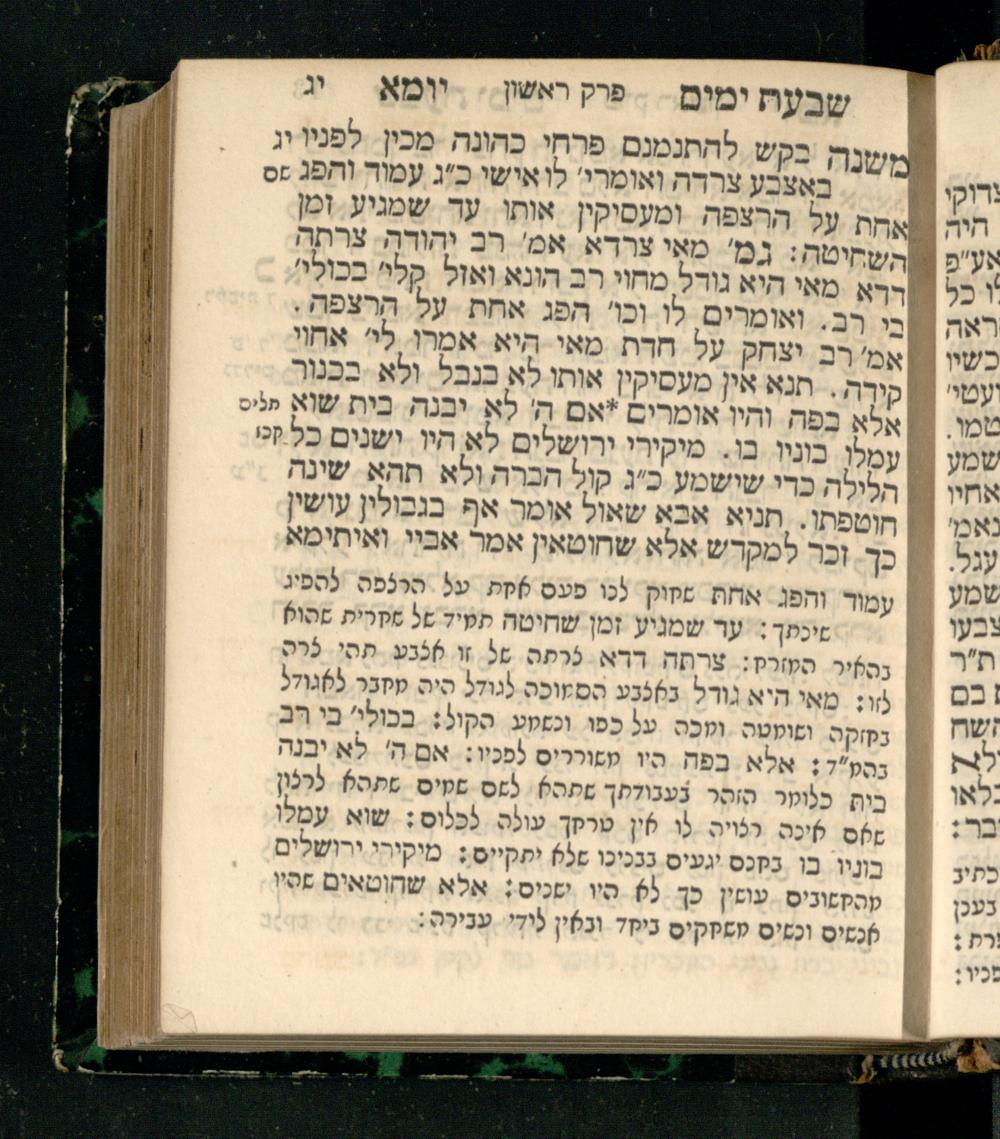 שבעת ימים פרק ראשון יומא יג
משנה בקש להתנמנם פרחי כהונה מכין לפניו יג
באצבע צרדה ואומרי׳ לו אישי כ״ג עמוד והפג שם
אחת על הרצפה ומעסיקין אותו עד שמגיע זמן
השחיטה: גמ׳ מאי צרדא אמ׳ רב יהודה צרתה
דדא מאי היא גודל מחוי רב הונא ואזל קלי׳ בכולי׳
בי רב. ואומרים לו וכו׳ הפג אחת על הרצפה.
אמ׳ רב יצחק על חדת מאי היא אמרו לי׳ אחוי
קידה. תנא אין מעסיקין אותו לא בנבל ולא בכנור
אלא בפה והיו אומרים *אם ה׳ לא יבנה בית שוא תלים
עמלו בוניו בו. מיקירי ירושלים לא היו ישנים כל קכז
הלילה כדי שישמע כ״ג קול הברה ולא תהא שינה
חוטפתו. תניא אבא שאול אומר אף בגבולין עושין
כך זכר למקדש אלא שחוטאין אמר אביי ואיתימא
עמוד והפג אחת שקוק לכו פעם אחת על הרצפה להפיג
שינתך: עד שמגיע זמן שחיטה תמיד של שחרית שהוא
בהאיר המזרח: צרתה דדא צרתה של זו אצבע תהי צרה
לזו: מאי היא גודל באצבע הסמוכה לגודל היה מחבר לאגודל
בחזקה ושומטה ומכה על כפו ונשמע הקול: בכולי׳ בי רב
בהמ״ד: אלא בפה היו משוררים לפניו: אם ה׳ לא יבנה
בית כלומר הזהר בעבודתך שתהא לשם שמים שתהא לרצון
שאם אינה רצויה לו אין טרחך עולה לכלום: שוא עמלו
בוניו בו בחנם יגעים בבנינו שלא יתקיים: מיקירי ירושלים
מהחשובים עושין כך לא היו ישנים: אלא שחוטאים שהיו
אנשים ונשים משחקים ביחד ובאין לידי עבירה: